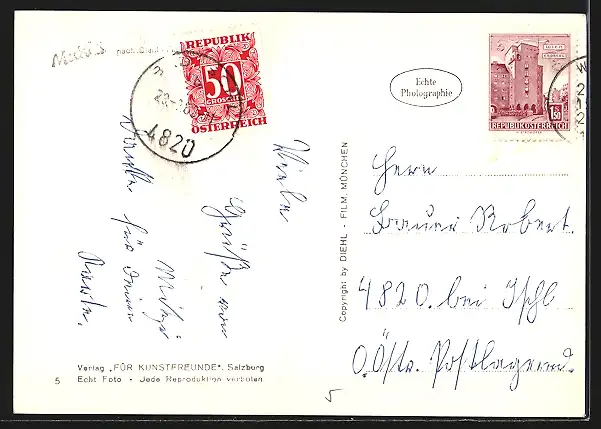 nach
REPUBLIK
50
GROSCHEN
ÖSTERREICH
4820
Viele
Grüße von
Mitzi
Danke für Deine
Karte.
Verlag „FÜR KUNSTFREUNDE“, Salzburg
5 Echt Foto • Jede Reproduktion verboten
Copyright by DIEHL - FILM, MÜNCHEN
Echte
Photographie
WIEN
1.50
REPUBLIK ÖSTERREICH
Herrn
Robert
4820. bei Ischl
O.Östr. Postlagernd.
5